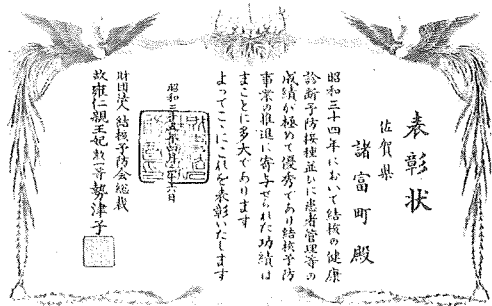 表彰状
佐賀県
諸富町殿
昭和三十四年において結核の健康
診断予防接種並びに患者管理等の
成績が極めて優秀であり結核予防
事業の推進に寄与せられた功績は
まことに多大であります
よってここにこれを表彰いたします
昭和三十五年
財団法人結核予防会総裁
故雍仁親王妃勲一等勢津子